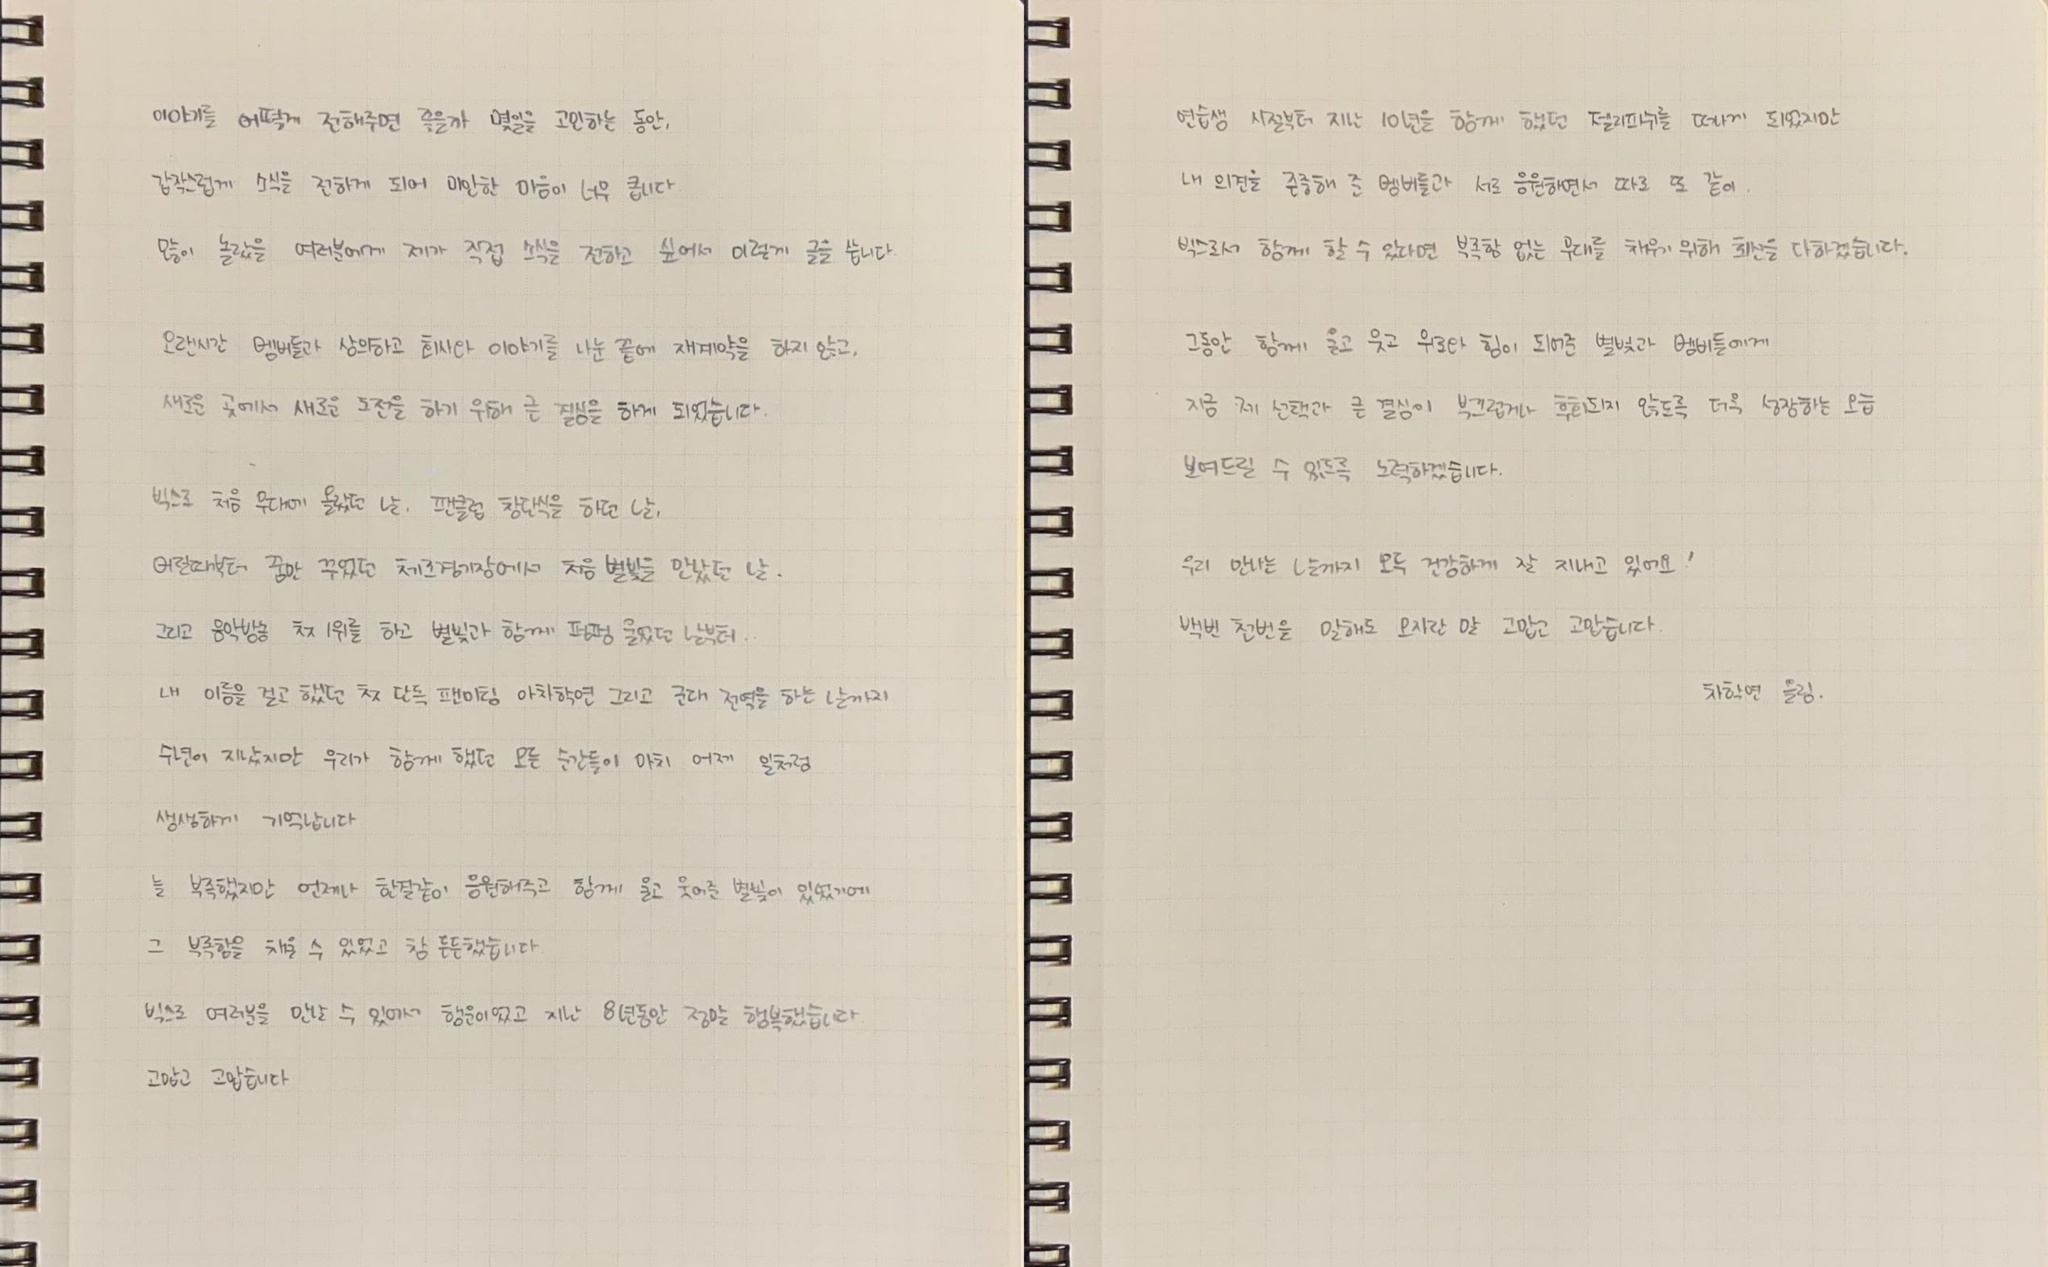 이야기를 어떻게 전해주면 좋을까 몇일을 고민하는 동안,
갑작스럽게 소식을 전하게 되어 미안한 마음이 너무 큽니다
많이 놀랐을 여러분에게 제가 직접 소식을 전하고 싶어서 이렇게 글을 씁니다.
오랜시간 멤버들과 상의하고 회사와 이야기를 나눈 끝에 재계약을 하지 않고,
새로운 곳에서 새로운 도전을 하기 위해 큰 결심을 하게 되었습니다.
빅스로 처음 무대에 올랐던 날, 팬클럽 창단식을 하던 날,
어린때부터 꿈만 꾸었던 체조경기장에서 처음 별빛들 만났던 날.
그리고 음악방송 첫 1위를 하고 별빛과 함께 펑펑 울었던 날부터..
내 이름을 걸고 했던 첫 단독 팬미팅 아차학연 그리고 군대 전역을 하는 날까지
수년이 지났지만 우리가 함께 했던 모든 순간들이 마치 어제 일처럼
생생하게 기억납니다
늘 부족했지만 언제나 한결같이 응원해주고 함께 울고 웃어준 별빛이 있었기에
그 부족함을 채울 수 있었고 참 든든했습니다
빅스로 여러분을 만날 수 있어서 행운이였고 지난 8년동안 정말 행복했습니다.
고맙고 고맙습니다
연습생 시절부터 지난 10년을 함께 했던 젤리피쉬를 떠나게 되었지만
내 의견을 존중해 준 멤버들과 서로 응원하면서 따로 또 같이.
빅스로서 함께 할 수 있다면 부족함 없는 무대를 채우기 위해 최선을 다하겠습니다.
그동안 함께 울고 웃고 위로와 힘이 되어준 별빛과 멤버들에게
지금 제 선택과 큰 결심이 부끄럽게나 후회되지 않도록 더욱 성장하는 모습
보여드릴 수 있도록 노력하겠습니다.
우리 만나는 날까지 모두 건강하게 잘 지내고 있어요!
백번 천번을 말해도 모자란 말 고맙고 고맙습니다.
차학연 올림.